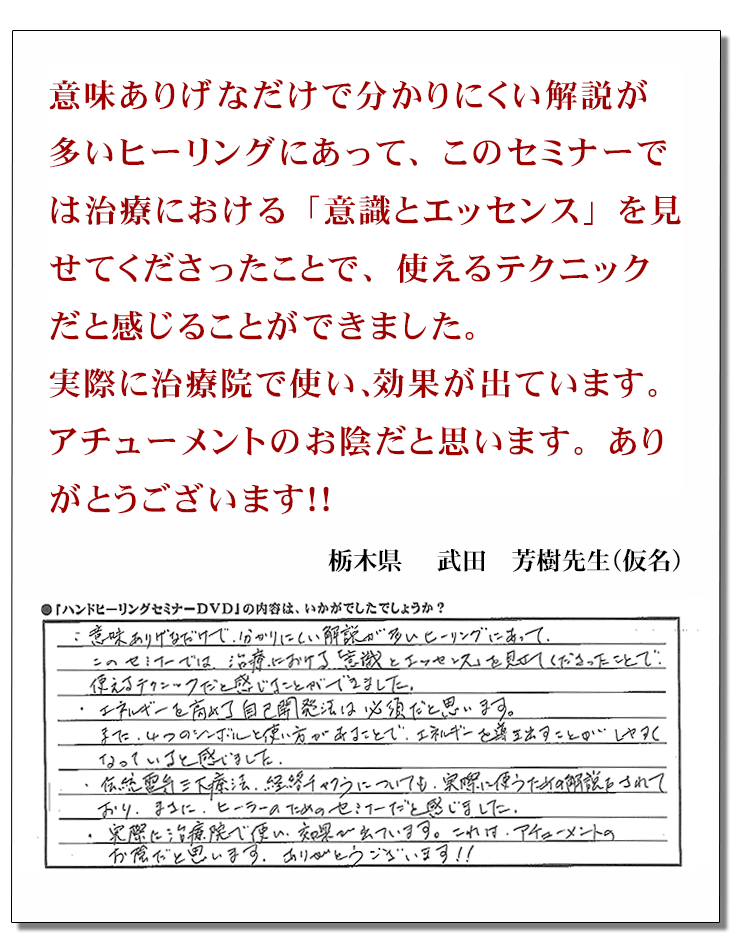 意味ありげなだけで分かりにくい解説が
多いヒーリングにあって、このセミナーで
は治療における「意識とエッセンス」を見
せてくださったことで、使えるテクニック
だと感じることができました。
実際に治療院で使い、効果が出ています。
アチューメントのお陰だと思います。あり
がとうございます!!
栃木県 武田 芳樹先生(仮名)
●『ハンドヒーリングセミナーDVD』の内容は、いかがでしたでしょうか?
・意味ありげなだけで、分かりにくい解説が多いヒーリングにあって、
このセミナーでは、治療における「意識とエッセンス」を見せてくださったことで、
使えるテクニックだと感じることができました。
・エネルギーを高める自己開発法は必須だと思います。
また、4つのシンボルと使い方があることで、エネルギーを導き出すことがしやすく
なっていると感じました。
・伝統霊気三大療法、経絡チャクラについても、実際に使うための解説をされて
おり、まさに、ヒーラーのためのセミナーだと感じました。
・実際に治療院で使い、効果が出ています。これは、アチューメントの
お陰だと思います。ありがとうございます!!